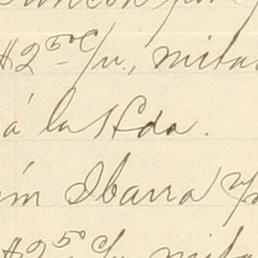 $2.50 c/u., mita
á la Hda.
ím Ibarra y/
$2.50 c/u mita